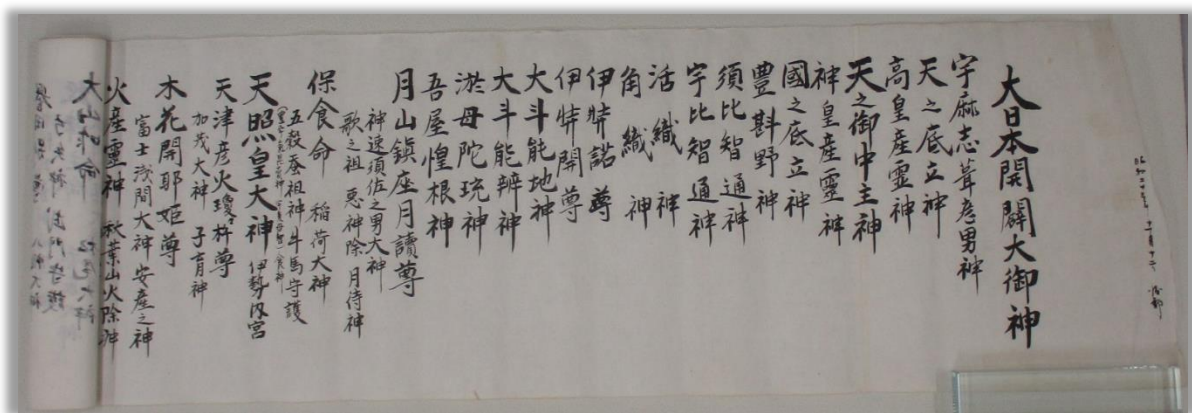 大日本開闢大御神
宇麻志葺彦男神
天之底立神
高皇産靈神
天之御中主神
神皇産靈神
國之底立神
豊斟野神
須比智通神
宇比智通神
活織神
角織神
伊弉諾尊
伊弉開尊
大斗能地神
大斗能辨神
淤母陀琉神
吾屋惶根神
月山鎮座月讀尊
神速須佐之男大神
歌之祖 惡神除 月待神
保食命 稲荷大神
五穀蚕祖神 牛馬守護
天照皇大神 伊勢内宮
天津彦火瓊々杵尊
加茂大神 子育神
木花開耶姫尊
富士浅間大神 安産之神
火産靈神 秋葉山火除神
大山咋命